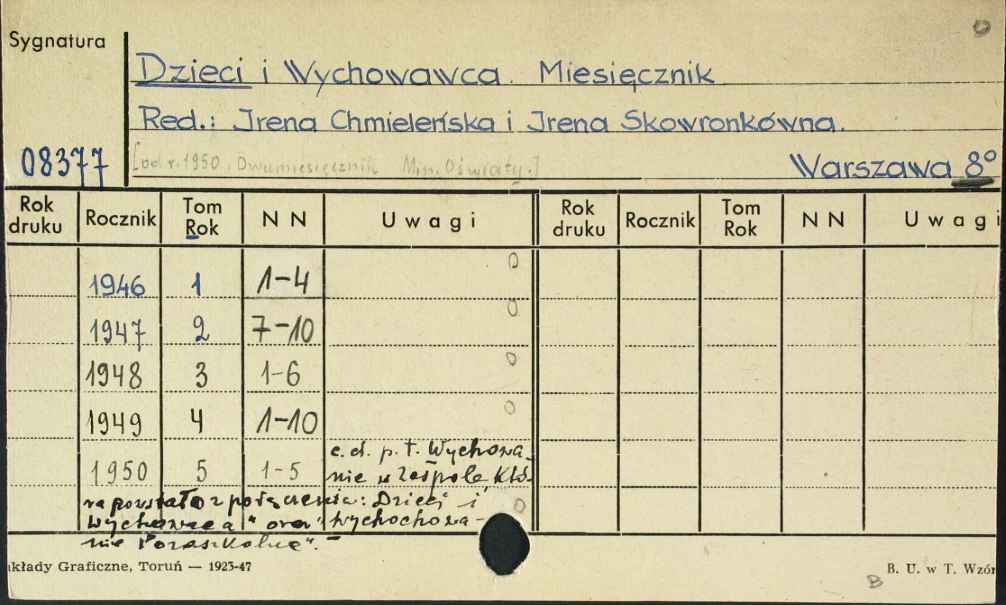 Sygnatura
Dzieci i Wychowawca. Miesięcznik
Red.: Irena Chmieleńska i Irena Skowronkówna.
08377 [od r. 1950. Dwumiesięcznik Min. Oświaty.] Warszawa 8°
Rok druku Rocznik Tom Rok N N Uwagi Rok druku Rocznik Tom Rok N N Uwagi
1946 1 1-4 0
1947 2 7-10 0
1948 3 1-6 0
1949 4 1-10 0
1950 5 1-5 c.d. p.t. Wychowa-
nie w Zespole, któ-
ra powstało z połączenia: Dzieci i
Wychowawca" oraz "Wychochowa-
nie Pozaszkolne". -
kłady Graficzne, Toruń — 1923-47 B. U. w T. Wzór
B